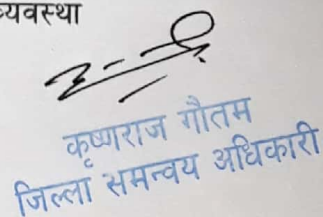 व्यवस्था
कृष्णराज गौतम
जिल्ला समन्वय अधिकारी